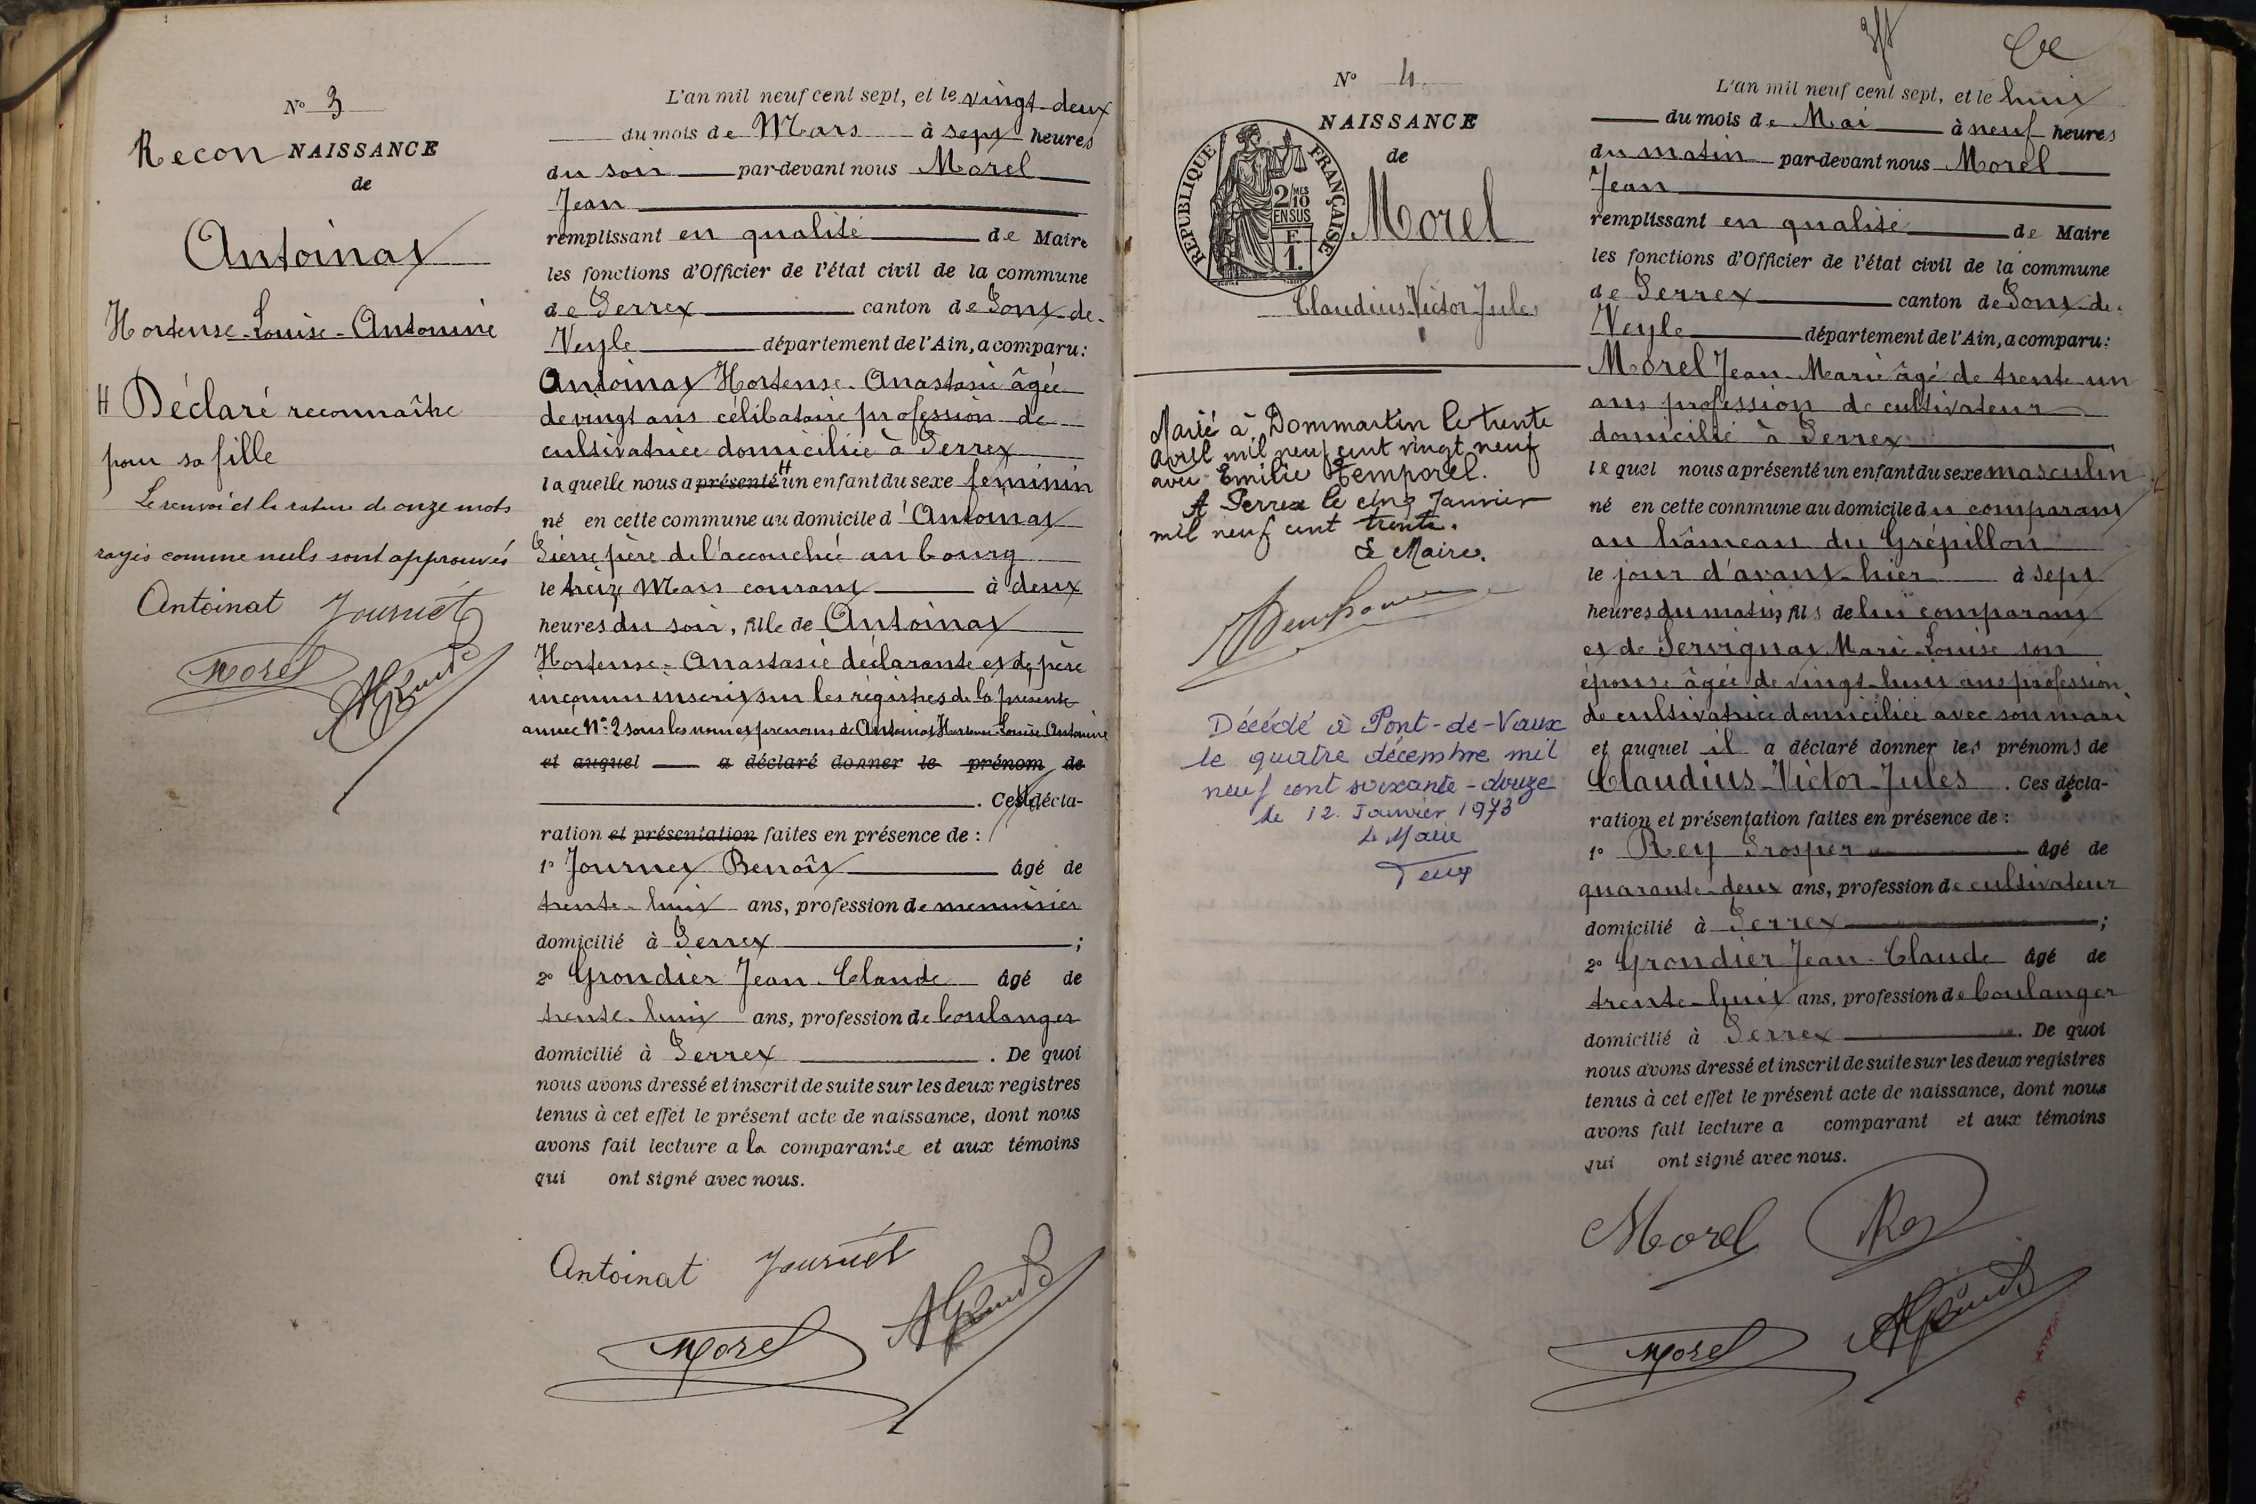 N° 3
Recon NAISSANCE
de
Antoinat
Hortense-Louise-Antonine
H Déclaré reconnaître
pour sa fille
Le renvoi et la rature de onze mots
rayés comme nuls sont approuvés
Antoinat Journet
Morel
L'an mil neuf cent sept, et le vingt-deux
du mois de Mars à sept heures
du soir par-devant nous Morel
Jean
remplissant en qualité de Maire
les fonctions d'Officier de l'état civil de la commune
de Perrex canton de Pont-de-
Veyle département de l'Ain, a comparu:
Antoinat Hortense-Anastasie âgée
de vingt ans célibataire profession de
cultivatrice domiciliée à Perrex
laquelle nous a présenté H un enfant du sexe féminin
né en cette commune au domicile d'Antoinat
Pierre père de l'accouchée au bourg
le treize Mars courant à deux
heures du soir, fille de Antoinat
Hortense-Anastasie déclarante et de père
inconnu inscrit sur les registres de la présente
année N° 2 sous les nom et prénoms de Antoinat Hortense-Louise Antonine
et auquel a déclaré donner le prénom de
. Cette décla-
ration et présentation faites en présence de :
1° Journet Benoît âgé de
trente-huit ans, profession de menuisier
domicilié à Perrex ;
2° Grondier Jean-Claude âgé de
trente-huit ans, profession de boulanger
domicilié à Perrex . De quoi
nous avons dressé et inscrit de suite sur les deux registres
tenus à cet effet le présent acte de naissance, dont nous
avons fait lecture a la comparante et aux témoins
qui ont signé avec nous.
Antoinat Journet
Morel
N° 4
NAISSANCE
de
RÉPUBLIQUE FRANÇAISE
2 MES
10
EN SUS
F
1.
Morel
Claudius-Victor-Jules
Marié à Dommartin le trente
avril mil neuf cent vingt neuf
avec Emilie Temporel.
A Perrex le cinq Janvier
mil neuf cent trente.
Le Maire.
Décédé à Pont-de-Vaux
le quatre décembre mil
neuf cent soixante-douze
le 12 Janvier 1973
Le Maire
L'an mil neuf cent sept, et le huit
du mois de Mai à neuf heures
du matin par-devant nous Morel
Jean
remplissant en qualité de Maire
les fonctions d'Officier de l'état civil de la commune
de Perrex canton de Pont-de-
Veyle département de l'Ain, a comparu:
Morel Jean-Marie âgé de trente-un
ans profession de cultivateur
domicilié à Perrex
lequel nous a présenté un enfant du sexe masculin
né en cette commune au domicile du comparant
au hâmeau du Grépillon
le jour d'avant-hier à sept
heures du matin, fils de lui comparant
et de Servignat Marie-Louise son
épouse âgée de vingt-huit ans profession
de cultivatrice domiciliée avec son mari
et auquel il a déclaré donner les prénoms de
Claudius-Victor-Jules . Ces décla-
ration et présentation faites en présence de :
1° Rey Prosper âgé de
quarante-deux ans, profession de cultivateur
domicilié à Perrex ;
2° Grondier Jean-Claude âgé de
trente-huit ans, profession de boulanger
domicilié à Perrex . De quoi
nous avons dressé et inscrit de suite sur les deux registres
tenus à cet effet le présent acte de naissance, dont nous
avons fait lecture a comparant et aux témoins
qui ont signé avec nous.
Morel Rey
Morel